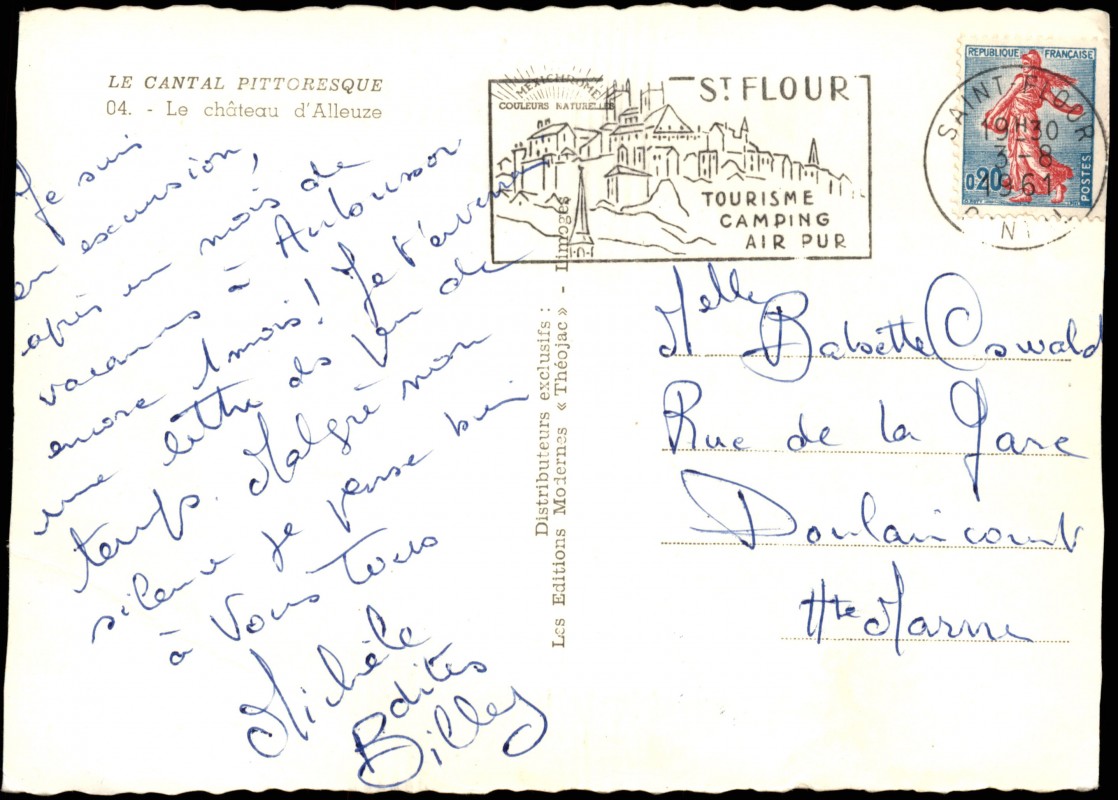 LE CANTAL PITTORESQUE
04. - Le château d'Alleuze
Je suis
en excursion,
après un mois de
vacances à
encore 1 mois! Je t'enverrai
une lettre ds peu de
temps. Malgré mon
silence je pense bien
à vous tous
Michèle
Billey
MEXICHROME
COULEURS NATURELLES
ST FLOUR
TOURISME
CAMPING
AIR PUR
Distributeurs exclusifs :
Les Editions Modernes « Théojac » - Limoges
REPUBLIQUE FRANÇAISE
0,20
POSTES
SAINT-FLOUR
19H30
3 - 8
1961
Melle Babette Oswald
Rue de la Gare
Doulaincourt
Hte Marne